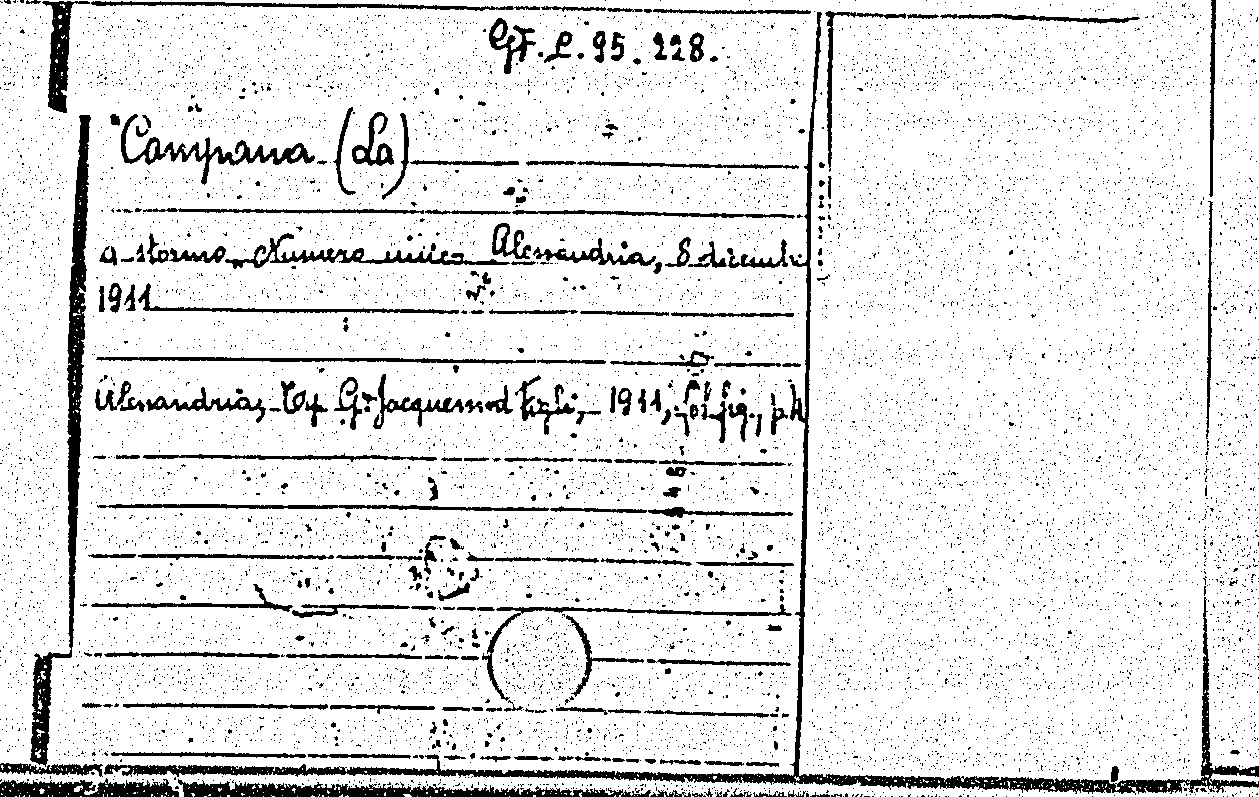 Gf. L. 95. 228.
"Campana (La)
a stormo„ Numero unico Alessandria, 8 dicembr
1911
Alessandria, Tip. G. Jacquemod Figli, 1911, fol. fig., p.